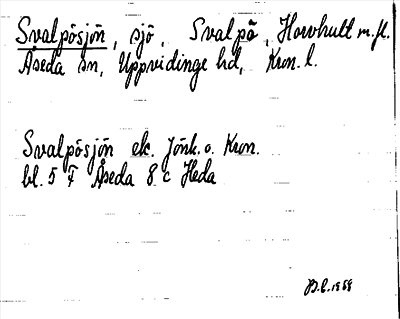 Svalpösjön, sjö, Svalpö, Horvhult m.fl.
Åseda sn, Uppvidinge hd, Kron. l.
Svalpösjön ek. Jönk. o. Kron.
bl. 5 F Åseda 8 c Heda
1968